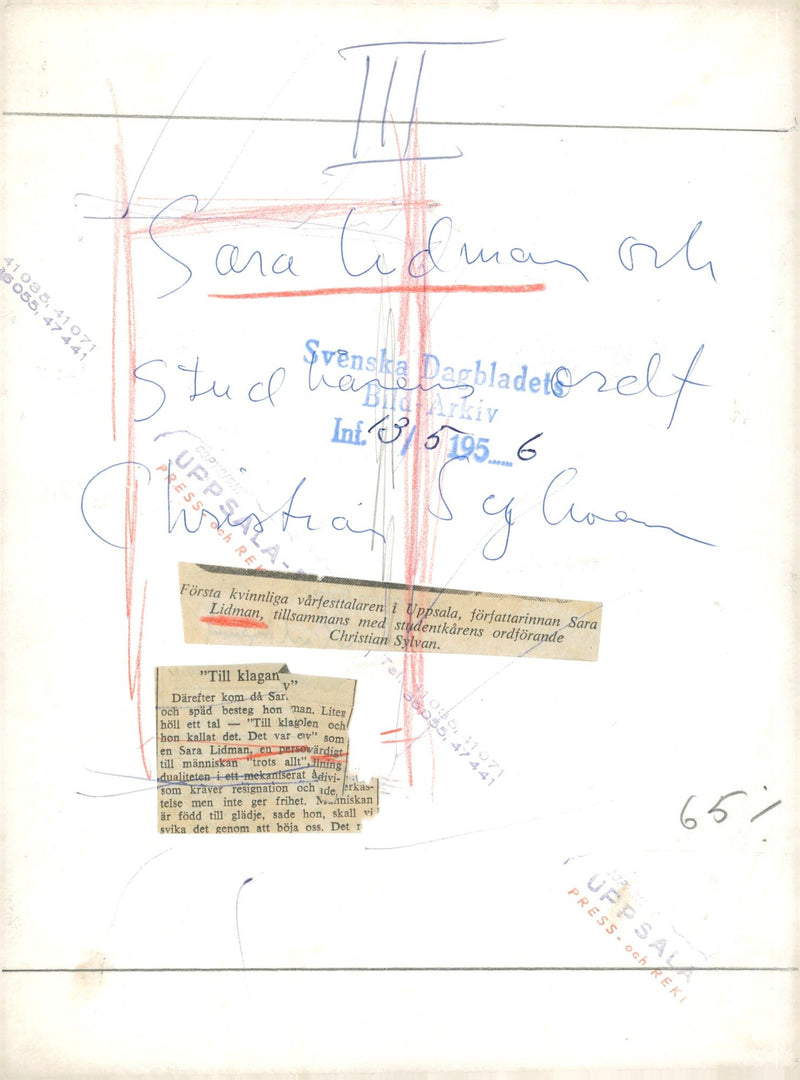 III
Sara Lidman och
41035, 41071
36055, 47441
Svenska Dagbladets
Bild-Arkiv
Inf. 13/5 195 6
Stud kårens ordf
Christian Sylwan
COPYRIGHT
UPPSALA-
PRESS- och REK
Första kvinnliga vårfesttalaren i Uppsala, författarinnan Sara
Lidman, tillsammans med studentkårens ordförande
Christian Sylvan.
"Till klagan
v"
Därefter kom då Sar
och späd besteg hon
man. Liten
höll ett tal — "Till kla
len och
hon kallat det. Det var
som
en Sara Lidman, en perso
värdigt
till människan "trots allt",
ining
dualiteten i ett mekaniserat
divi-
som kräver resignation och
erkas-
telse men inte ger frihet. Människan
är född till glädje, sade hon, skall vi
svika det genom att böja oss. Det
Tel. 41035, 41071
36055, 47441
65%
UPPSALA
PRESS- och REKL